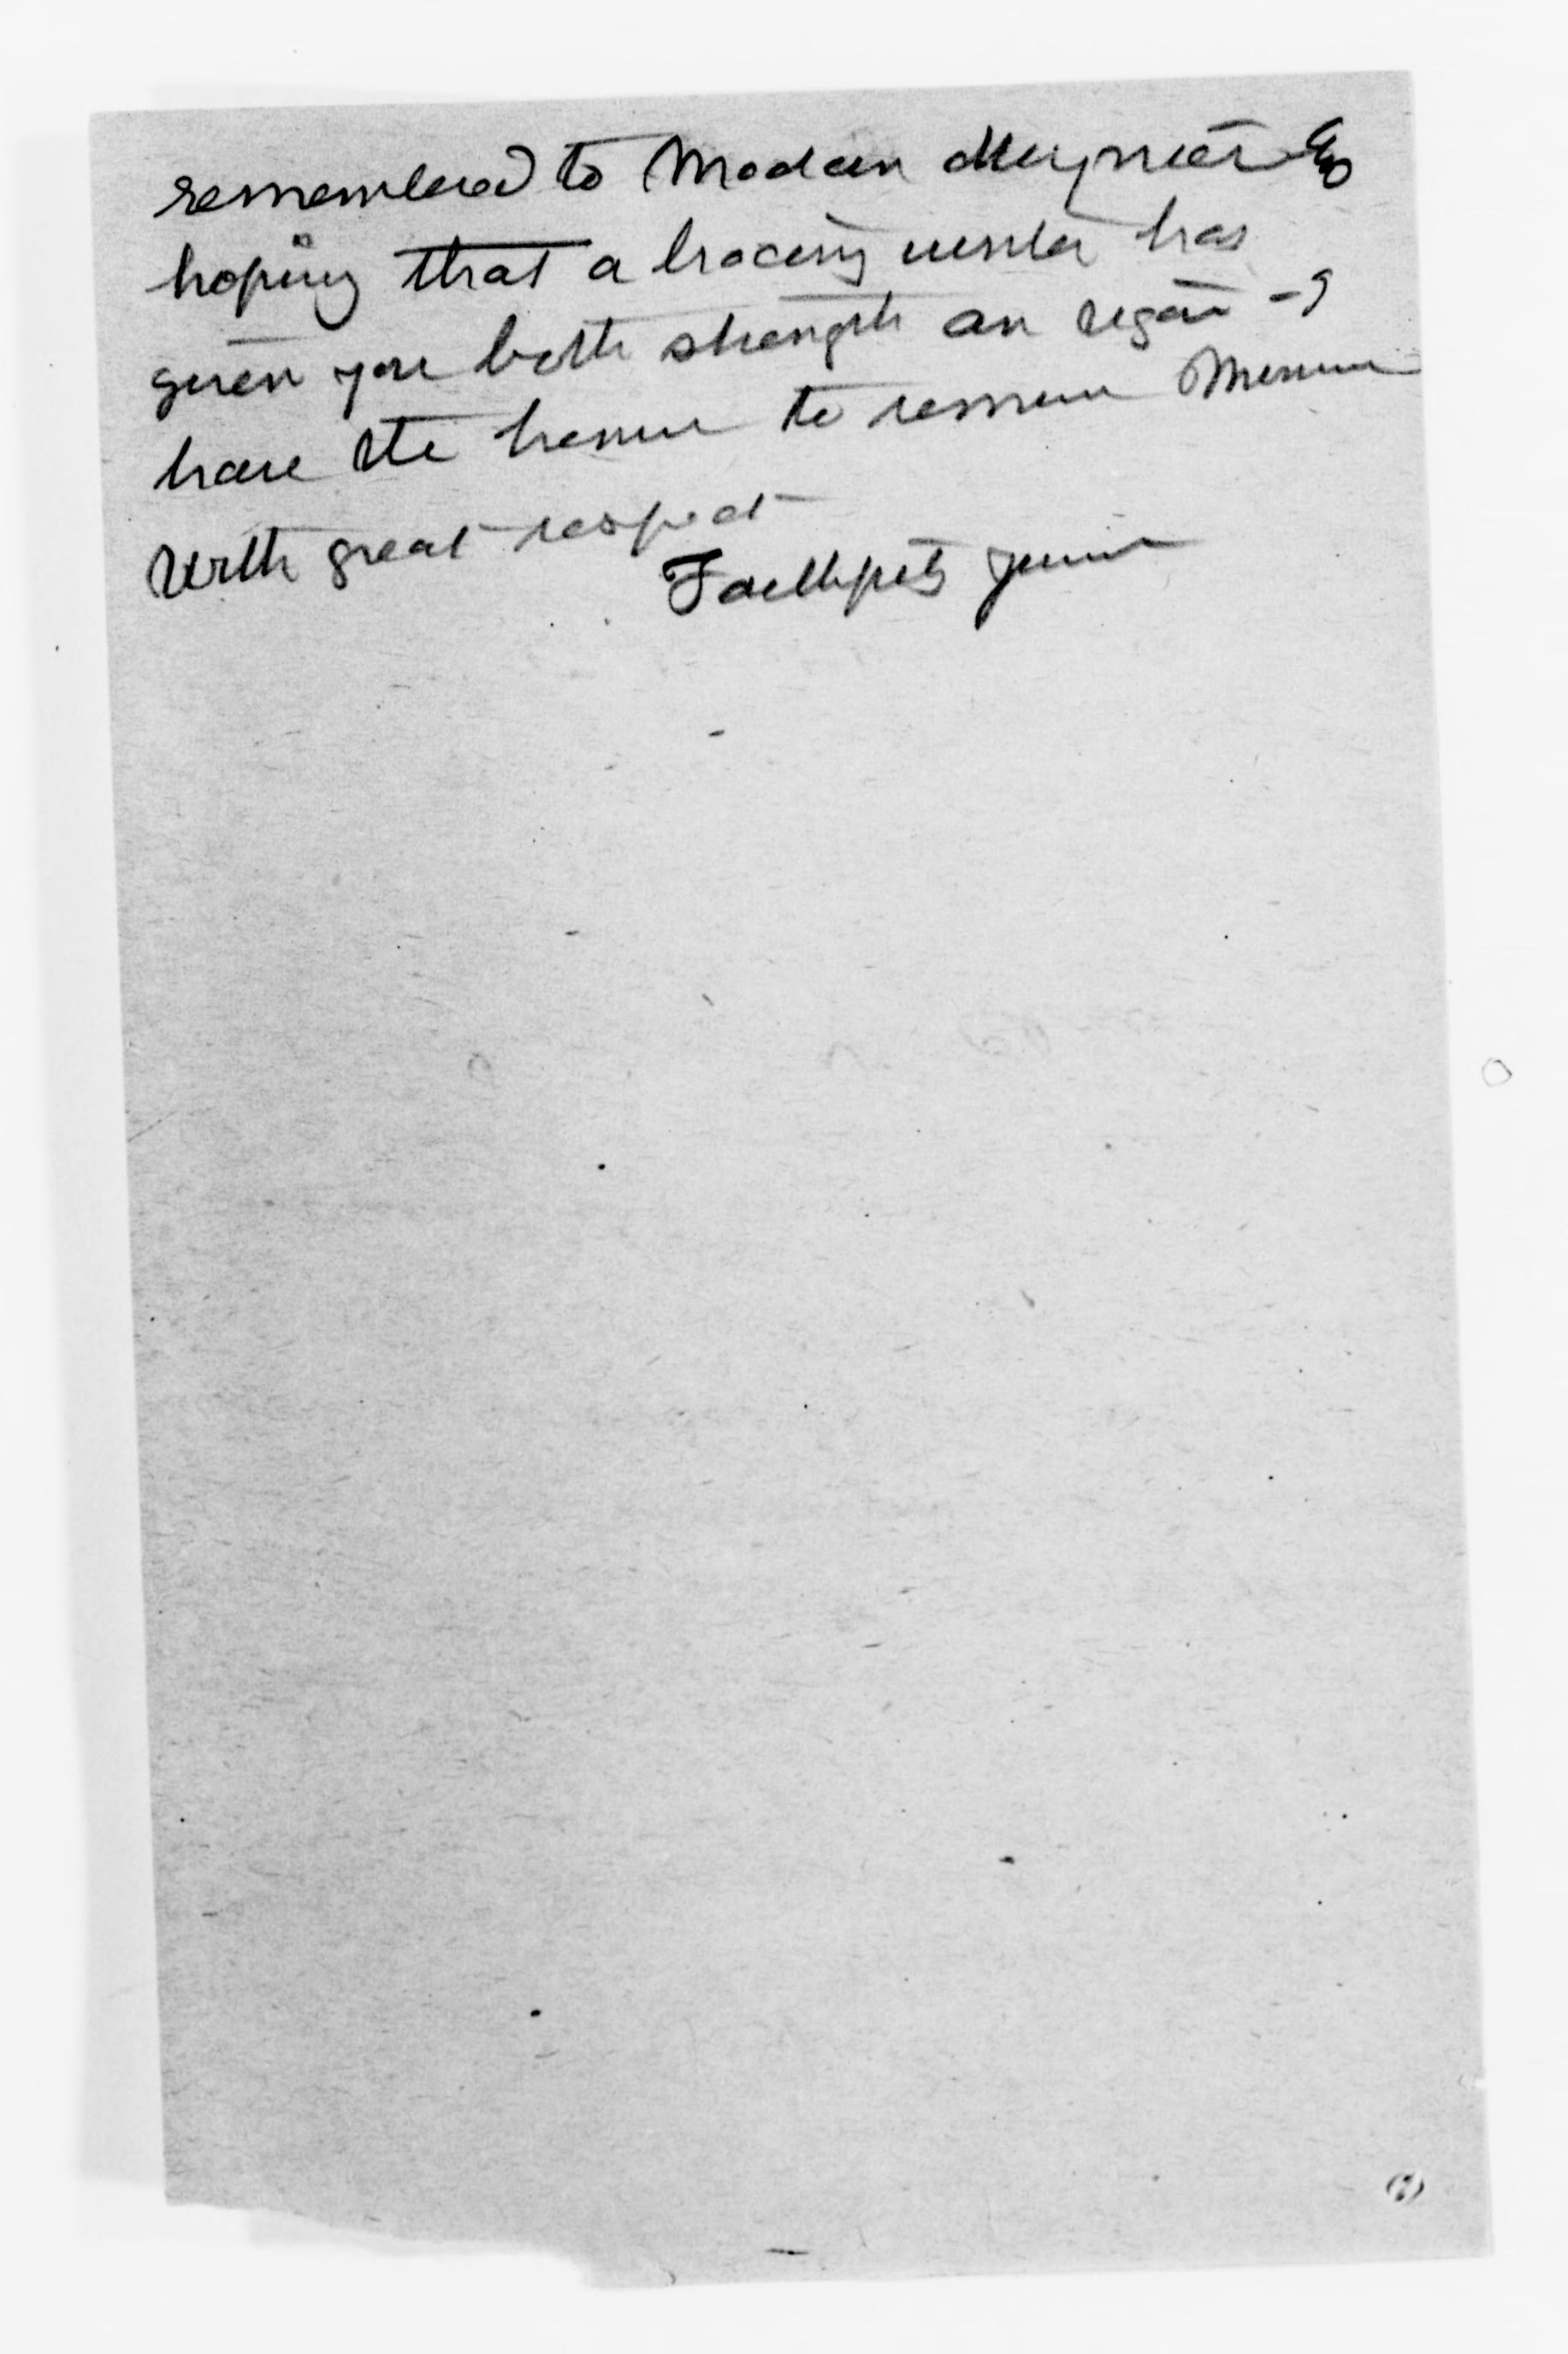 remembered to Madam Meynier &
hoping that a bracing winter has
given you both strength an vigour - I
have the honour to remain Monsieur
With great respect
Faithfully yours